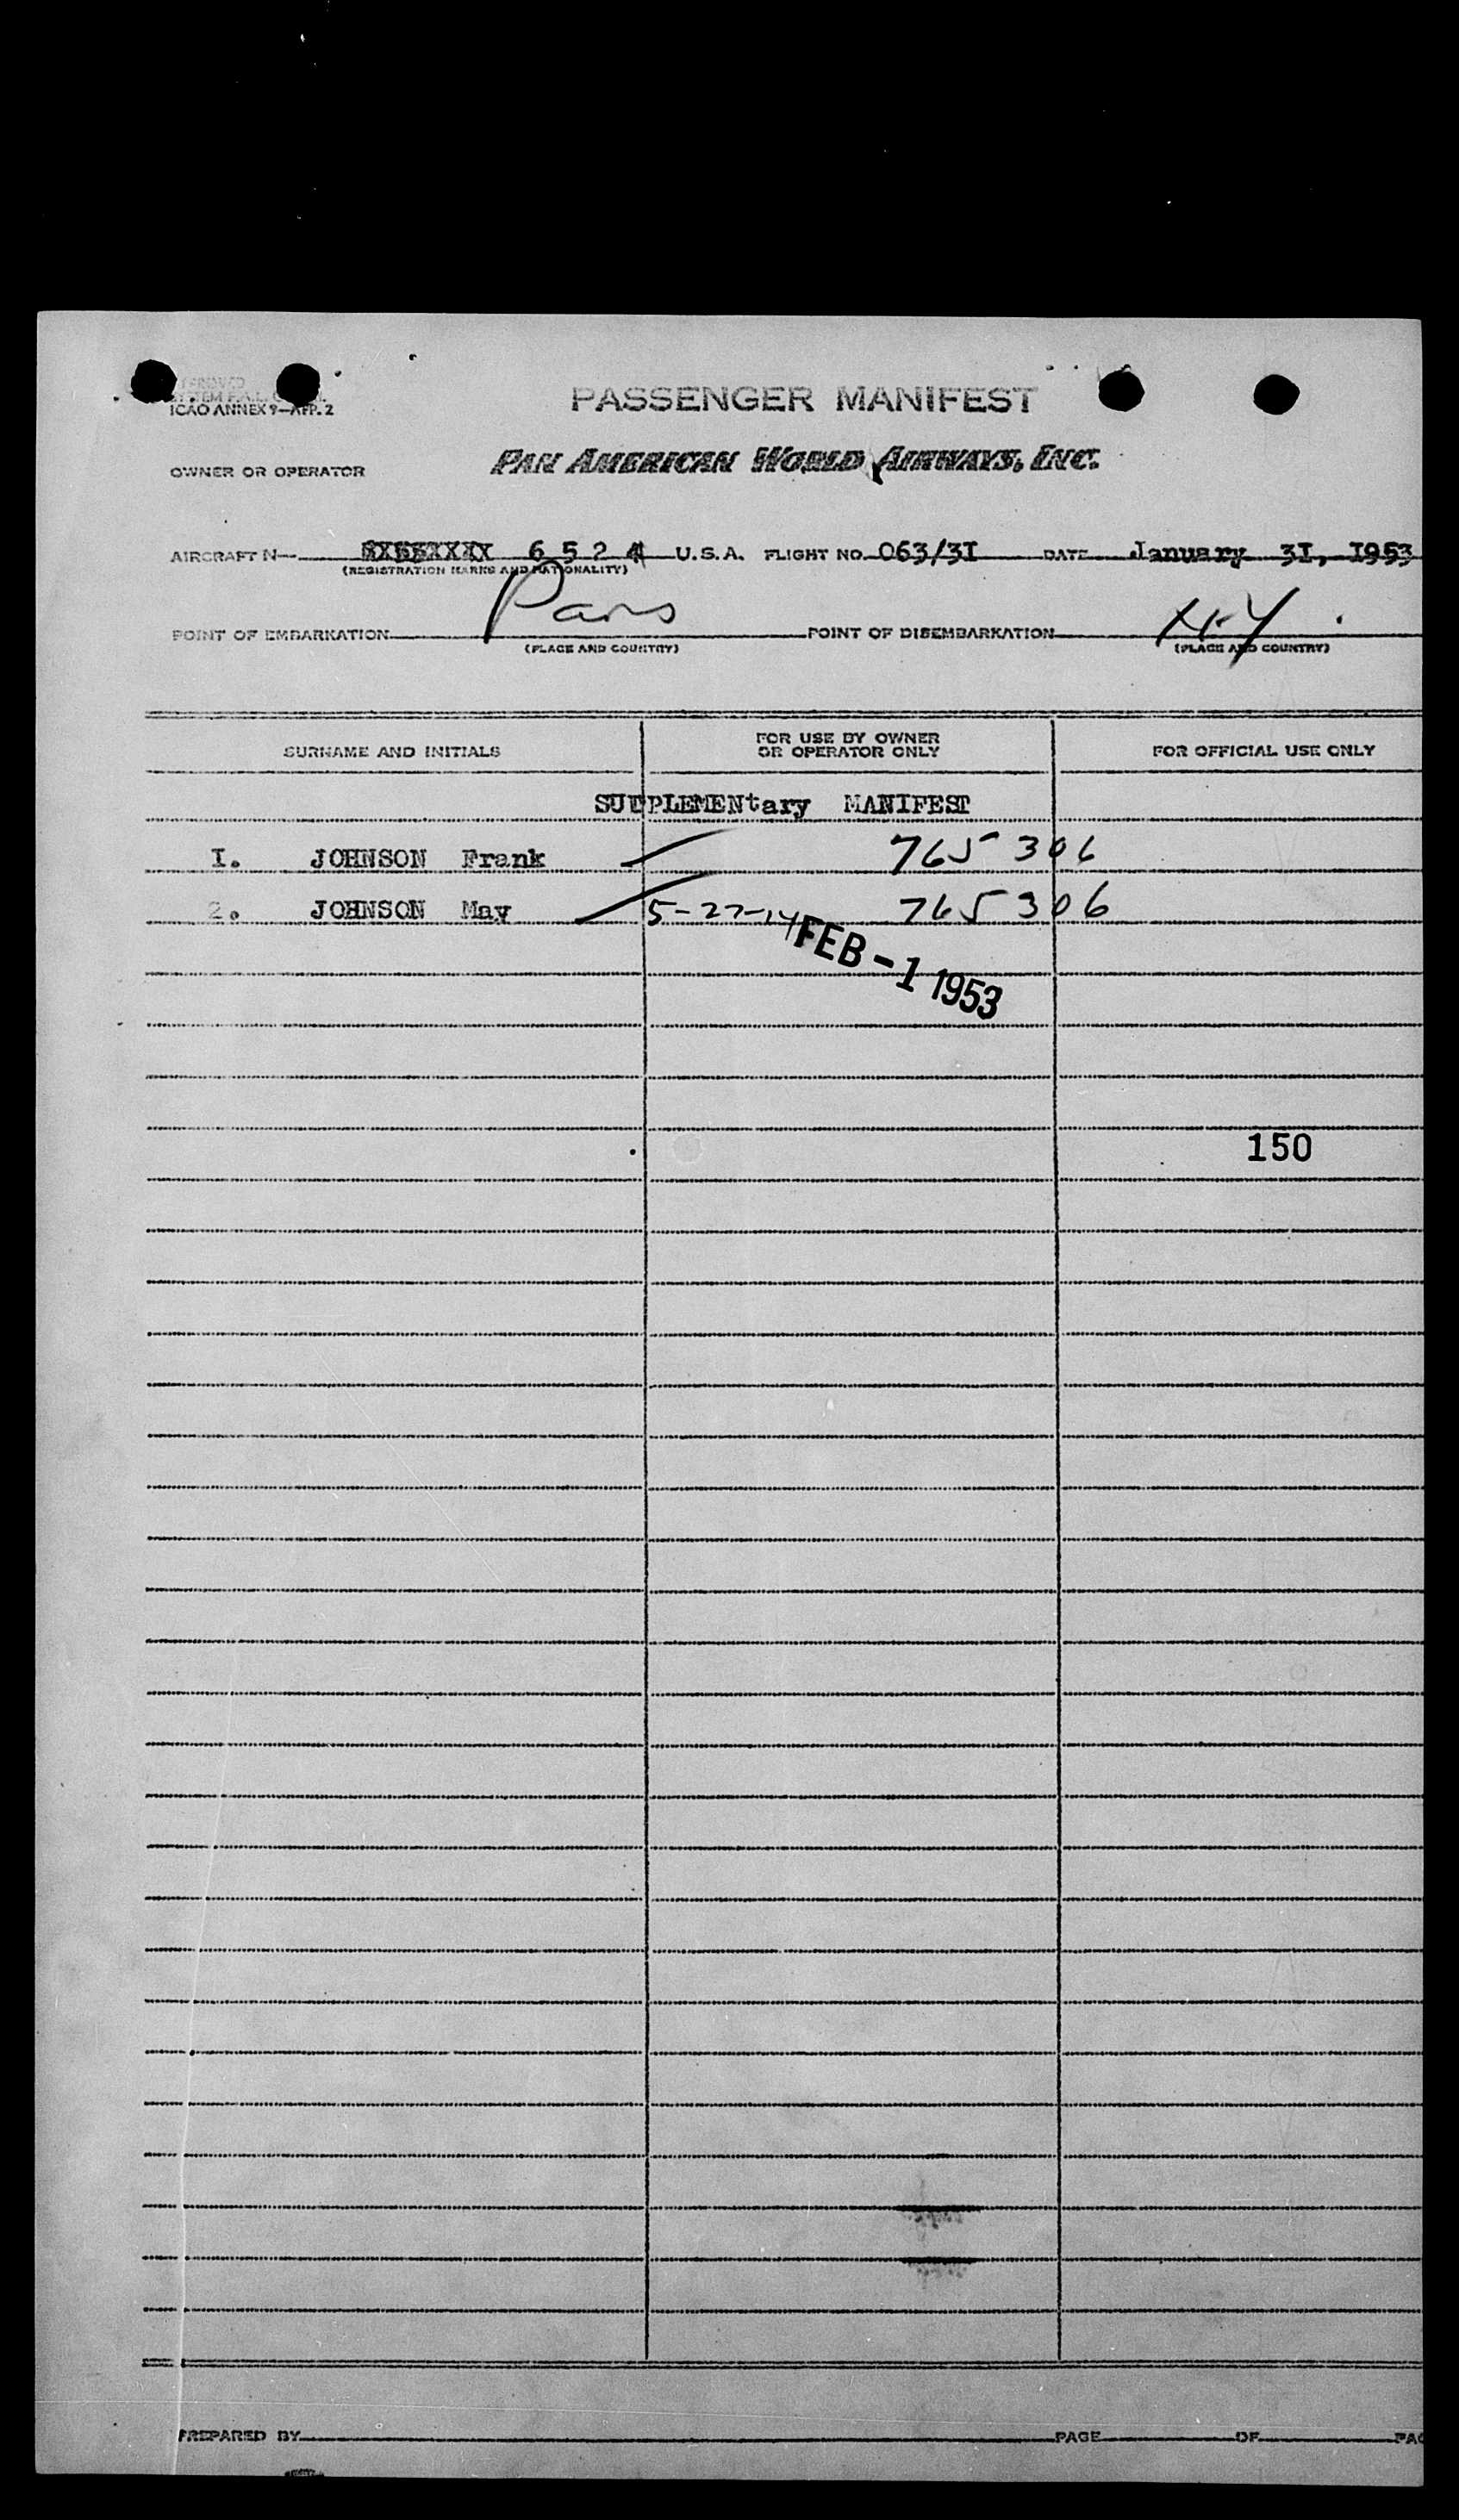 ICAO ANNEX 9—APP. 2
PASSENGER MANIFEST
OWNER OR OPERATOR PAN AMERICAN WORLD AIRWAYS, INC.
AIRCRAFT N— 6 5 2 4 U.S.A. FLIGHT NO. 063/3I DATE January 3I, I953
(REGISTRATION MARKS AND NATIONALITY)
POINT OF EMBARKATION Paris POINT OF DISEMBARKATION N.Y.
(PLACE AND COUNTRY) (PLACE AND COUNTRY)
SURNAME AND INITIALS FOR USE BY OWNER OR OPERATOR ONLY FOR OFFICIAL USE ONLY
SUPPLEMENtary MANIFEST
I. JOHNSON Frank 765 306
2. JOHNSON May 5-27-14 765 306
FEB -1 1953
150
PREPARED BY PAGE OF PAG